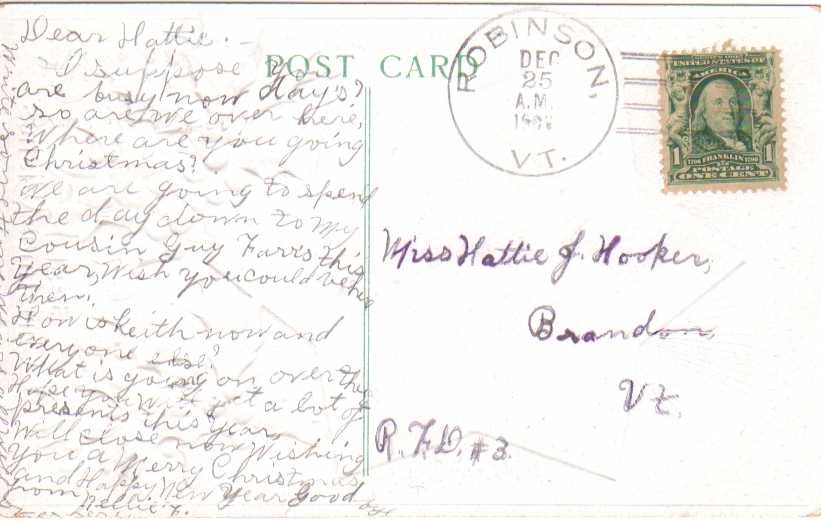 POST CARD
Dear Hattie.—
I suppose you
are busy now days?
so are we over here,
Where are you going
Christmas?
We are going to spend
the day down to my
Cousin Guy Farr's this
year, Wish you could be here
then.
How is Keith now and
everyone else?
What is going on over there
Hope you will get a lot of
presents this year,
Will close now Wishing
you a Merry Christmas
and Happy New Year Good bye
from Nellie F.
ROBINSON,
DEC
25
A.M.
VT.
UNITED STATES OF
AMERICA
1 FRANKLIN 1
POSTAGE
ONE CENT
Miss Hattie J. Hooker,
Brandon,
Vt.
R.F.D. #3.